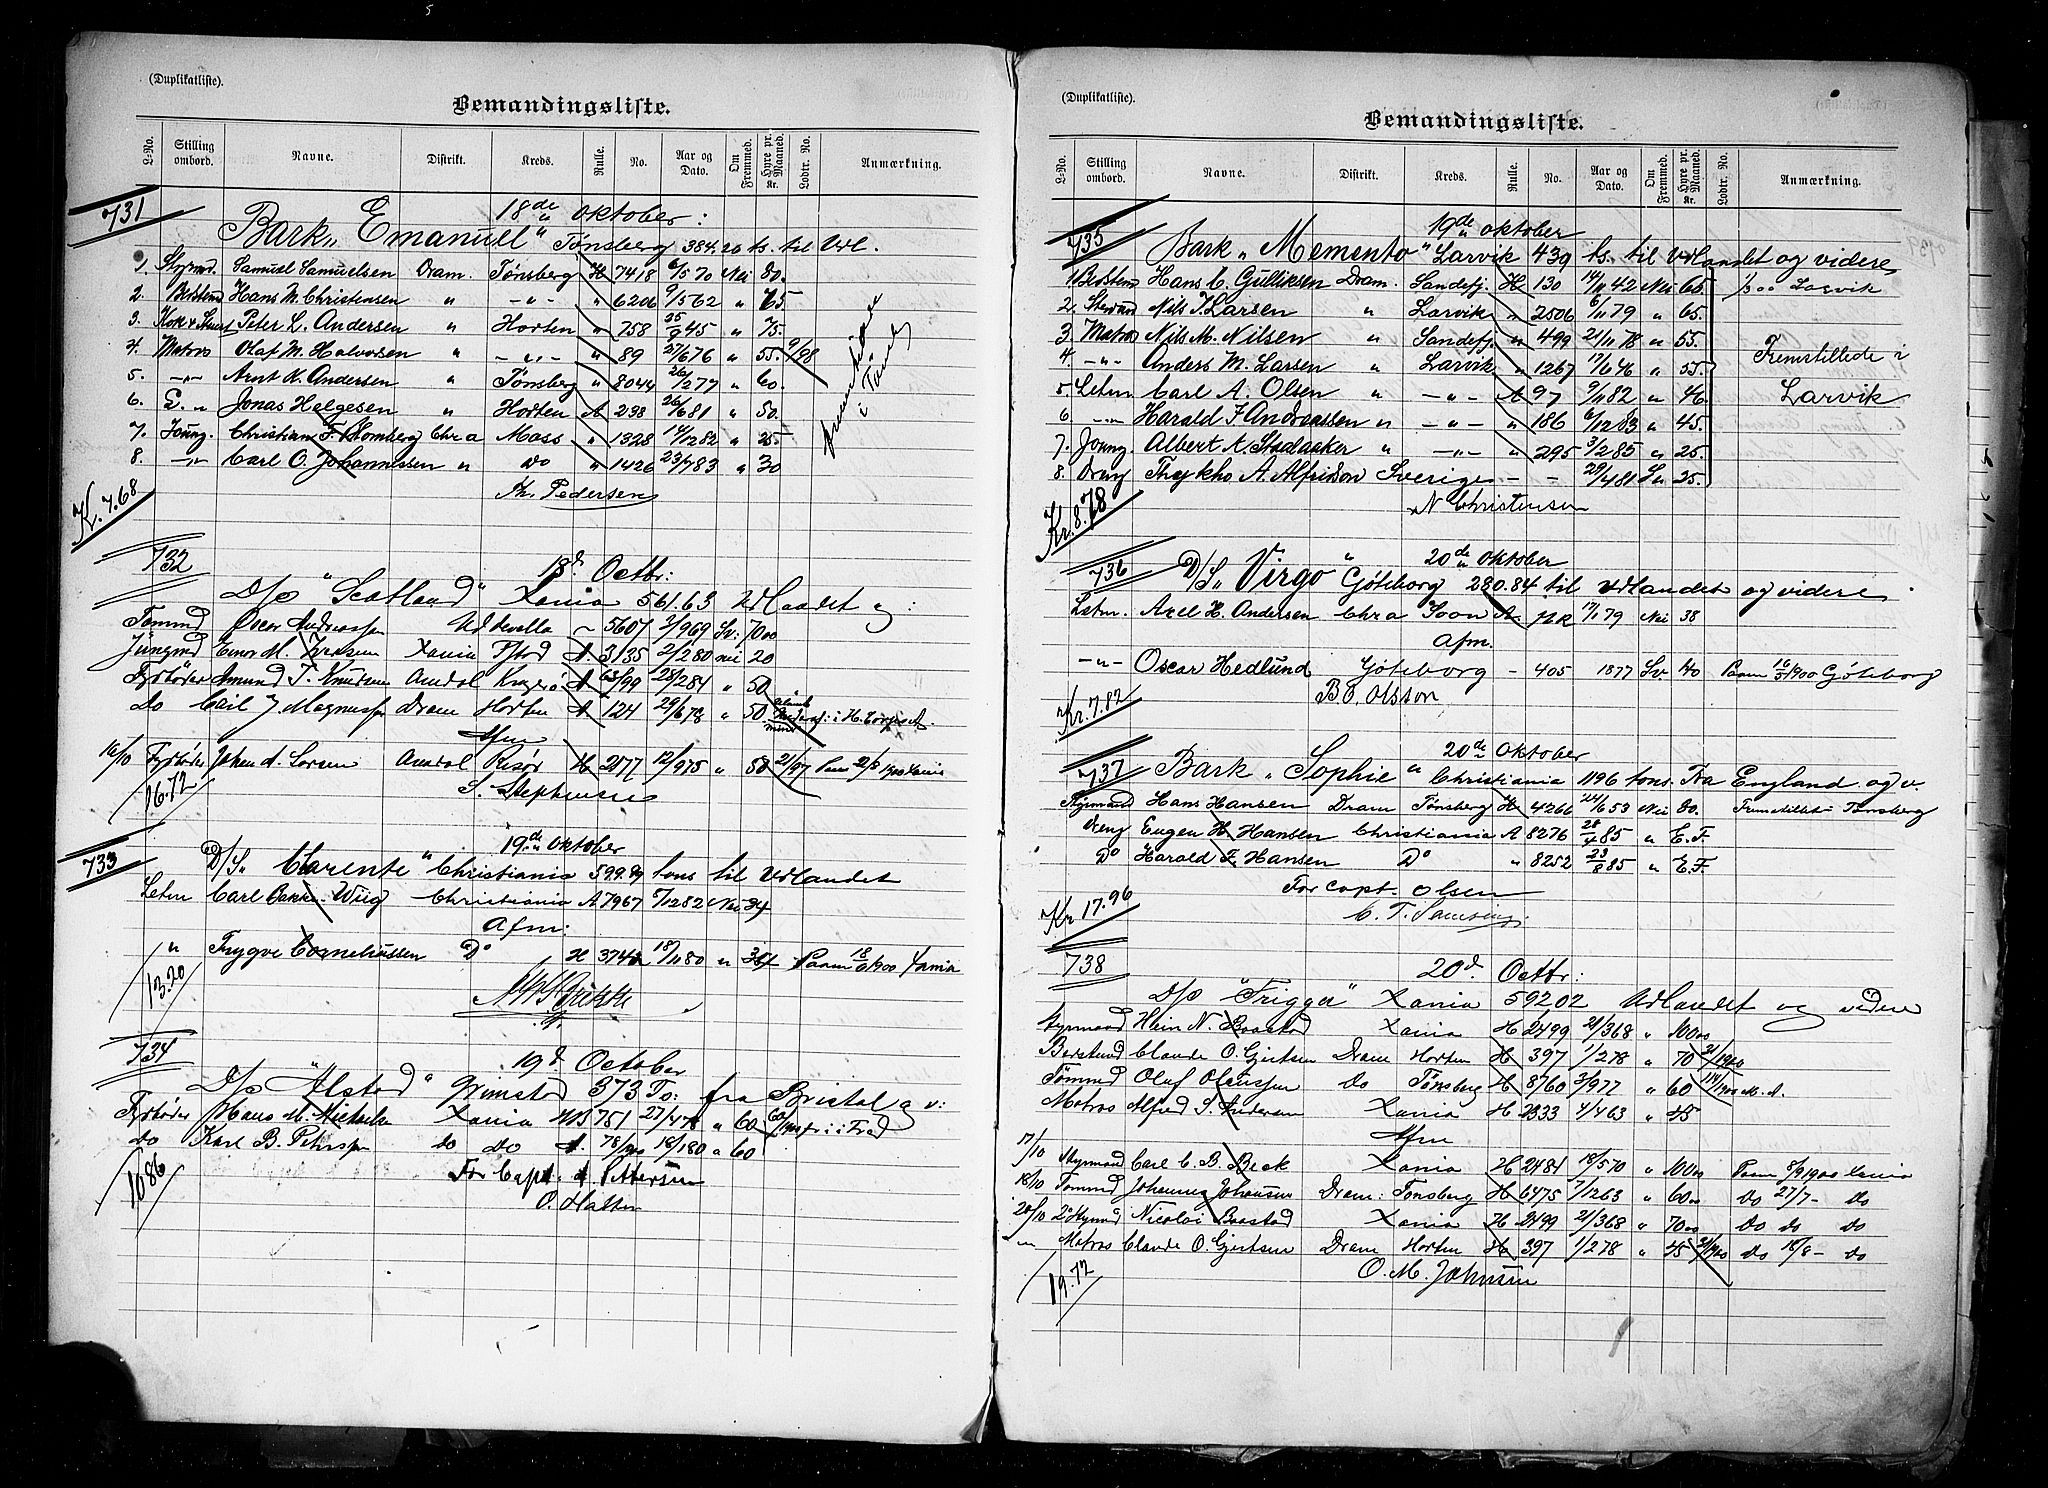 (Duplikatliste).
Bemandingsliste.
L-No. Stilling ombord. Navne. Distrikt. Kreds. Rulle. No. Aar og Dato. Om Fremmed. Hyre pr. Maaned. Kr. Lodtr. No. Anmærkning.
731 18de oktober:
Bark „Emanuel" Tønsberg 384.20 ts. til Udl.
1. Styrmd. Samuel Samuelsen Dram. Tønsberg H 7418 6/5 70 Nei 80.
2. Bestmd Hans M. Christensen " -"- " 6206 9/5 62 " 65
3. Kok & Stuert Peter L. Andersen " Horten " 758 25/9 45 " 75.
4. Matros Olaf M. Halvorsen " -"- " 89 27/6 76 " 55. 9/98
5. -"- Arnt K. Andersen " Tønsberg " 8044 26/2 77 " 60.
6. L. " Jonas Helgesen " Horten A 238 26/6 81 " 50.
7. Joung. Christian F. Blomberg Chra Moss " 1328 14/12 82 " 25.
8. -"- Carl O. Johannessen " do " 1426 23/7 83 " 30
i Tønsbg
Kr. 7.68 Th. Pedersen
732 18d. Octbr:
D/s "Scotland" Xania 561.63 Udlandet og:
Tømmd Oscar Andreassen Uddevalla ~ 5607 3/9 69 Sv: 70 00
Jüngmd Einar M. Iversen Xania A 3/35 2/2 80 nei 20
Fyrbøder Amund T. Knudsen Arendal Kragerø A 63/99 28/2 84 " 50
Do Carl J. Magnussen Dram Horten A 124 29/6 78 " 50
Afm
16/10 Fyrbøder Johan A. Larsen Arendal Risør H 2177 12/9 75 " 50 21/97 Paam 2/8 1900 Xania
16.72 S. Stephensen
733 19de oktober
D/S. „Clarente" Christiania 599.89 tons til Udlandet
Letm Carl Bakke Wiig Christiania A 7967 6/12 82 Nei 34
Afm:
" Trygve Cornelüssen Do H 3748 18/11 80 " 34 Paam 18/6 1900 Xania
13.20
734 19d October
D/s "Ulstad" Grimstad 573 To: fra Bristol o v:
Fyrbøder Hans M. Mickelsen Xania 751 27/4 78 " 60
do Karl B. Petersen do do A. 78/900 18/1 80 " 60
10.86 For Capt. A Pettersen
O. Halter
(Duplikatliste).
Bemandingsliste.
L-No. Stilling ombord. Navne. Distrikt. Kreds. Rulle. No. Aar og Dato. Om Fremmed. Hyre pr. Maaned. Kr. Lodtr. No. Anmærkning.
735 19de oktober
Bark „Memento" Larvik 439 ts. til Udlandet og videre
1 Bestmd Hans C. Gulliksen Dram. Sandefj. H 130 14/11 42 Nei 65 Larvik
2. Steward Nils J. Larsen " Larvik " 2506 6/11 79 " 65.
3 Matros Nils M. Nilsen " Sandefj. " 499 21/11 78 " 55.
4. -"- Anders M. Larsen " Larvik " 1267 17/6 46 " 55. Fremstillede i
5. Letm Carl A. Olsen " -"- A 97 9/11 82 " 46. Larvik
6 -"- Harald F. Andreassen " -"- " 186 6/12 83 " 45.
7. Joung Albert K. Stadaaker " -"- " 295 3/2 85 " 25.
8. Dreng A. Alfridson Sverige - - 29/4 81 Sv 25.
Kr. 8.78 N Christensen
736 D/S. „Virgo" 20de oktober
Göteborg 280.84 til Udlandet og videre
Letm. Axel H. Andersen Chra Soon A 17/11 79 Nei 38
Afm.
-"- Oscar Hedlund Göteborg - 405 1877 Sv 40 Paam 16/5 1900 Göteborg
Kr. 7.82 B O. Olsson
20de oktober
737 Bark „Sophie" Christiania 1196 tons. Fra England og v.
Styrmand Hans Hansen Dram Tønsberg H 4266 24/6 53 Nei 80. Fremstillet Tønsberg
Dreng Eugen H. Hansen Christiania A 8276 28/4 85 " E. F.
Do Harald F. Hansen Do " 8252 23/8 85 " E. F.
For capt. Olsen
Kr 17.96 C. T. Samsing.
738 20d. Octbr:
D/s "Frigga" Xania 592 02 Udlandet og videre
Styrmand Hein N. Baastad Xania H 2499 21/3 68 " 100 00
Bestmd Claude O. Gjertsen Dram Horten H 397 1/2 78 " 70 21/1900
Tømmd Oluf Olaussen do Tønsberg H 8760 3/9 77 " 60
Matros Alfred S. Andersen Xania H 2333 4/4 63 " 45
Afm
17/10 Styrmand Carl C. B. Beck Xania H 2484 18/5 70 " 100 00 Paam 8/9 1900 Xania
18/10 Tommd Johannes Johansen Dram: Tønsberg H 6475 7/12 63 " 60 00 do 27/7- do
20/10 2. Styrmd Nicolai Baastad Xania H 2499 21/3 68 " 70 00 do do do
-"- Matros Claude O. Gjertsen Dram Horten H 397 1/2 78 " 45 21/1900 do 18/8- do
19.72 O. M. Johnsen